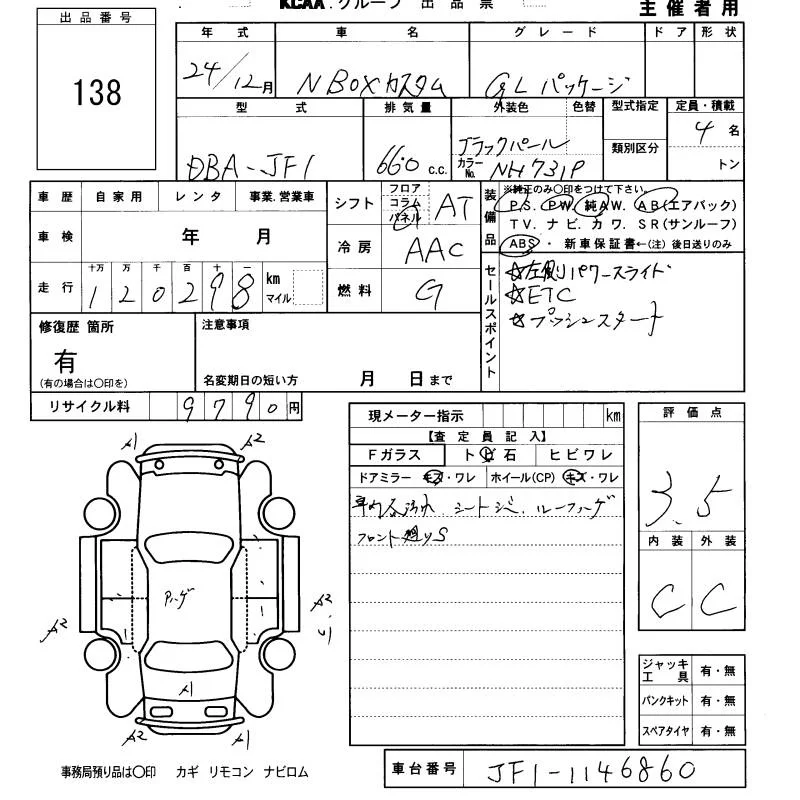 KCAA.グループ 出品票
主催者用
出品番号
138
年式 車名 グレード ドア 形状
24/12月 N BOXカスタム GLパッケージ
型式 排気量 外装色 色替 型式指定 定員・積載
DBA-JF1 660 c.c. ブラックパール 4名
カラーNo. NH731P 類別区分 トン
車歴 自家用 レンタ 事業.営業車
車検 年 月
走行 十万 万 千 百 十 一
120298 km マイル
シフト フロア コラム パネル AT
冷房 AAC
燃料 G
装備品 ※純正のみ〇印をつけて下さい。
P.S. PW. 純AW. AB(エアバック)
TV. ナビ. カワ. SR(サンルーフ)
ABS・新車保証書←(注)後日送りのみ
セールスポイント
☆左側パワースライド
☆ETC
☆プッシュスタート
修復歴 箇所
有
(有の場合は〇印を)
注意事項
名変期日の短い方 月 日まで
リサイクル料 9790円
現メーター指示 km
【査定員記入】
Fガラス トビ石 ヒビワレ
ドアミラー キズ・ワレ ホイール(CP) キズ・ワレ
車内 汚れ シート ルーフハゲ
フロント廻りS
評価点
3.5
内装 外装
C C
ジャッキ工具 有・無
パンクキット 有・無
スペアタイヤ 有・無
A1 A2
ハゲ
A2 A2
A1
A2 A1
事務局預り品は〇印 カギ リモコン ナビロム
車台番号 JF1-1146860